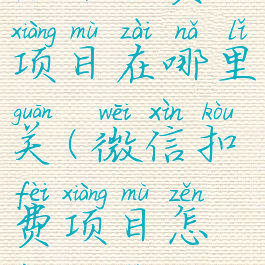 xiàng mù zài nǎ lǐ
项目在哪里
guān wēi xìn kòu
关(微信扣
fèi xiàng mù zěn
费项目怎